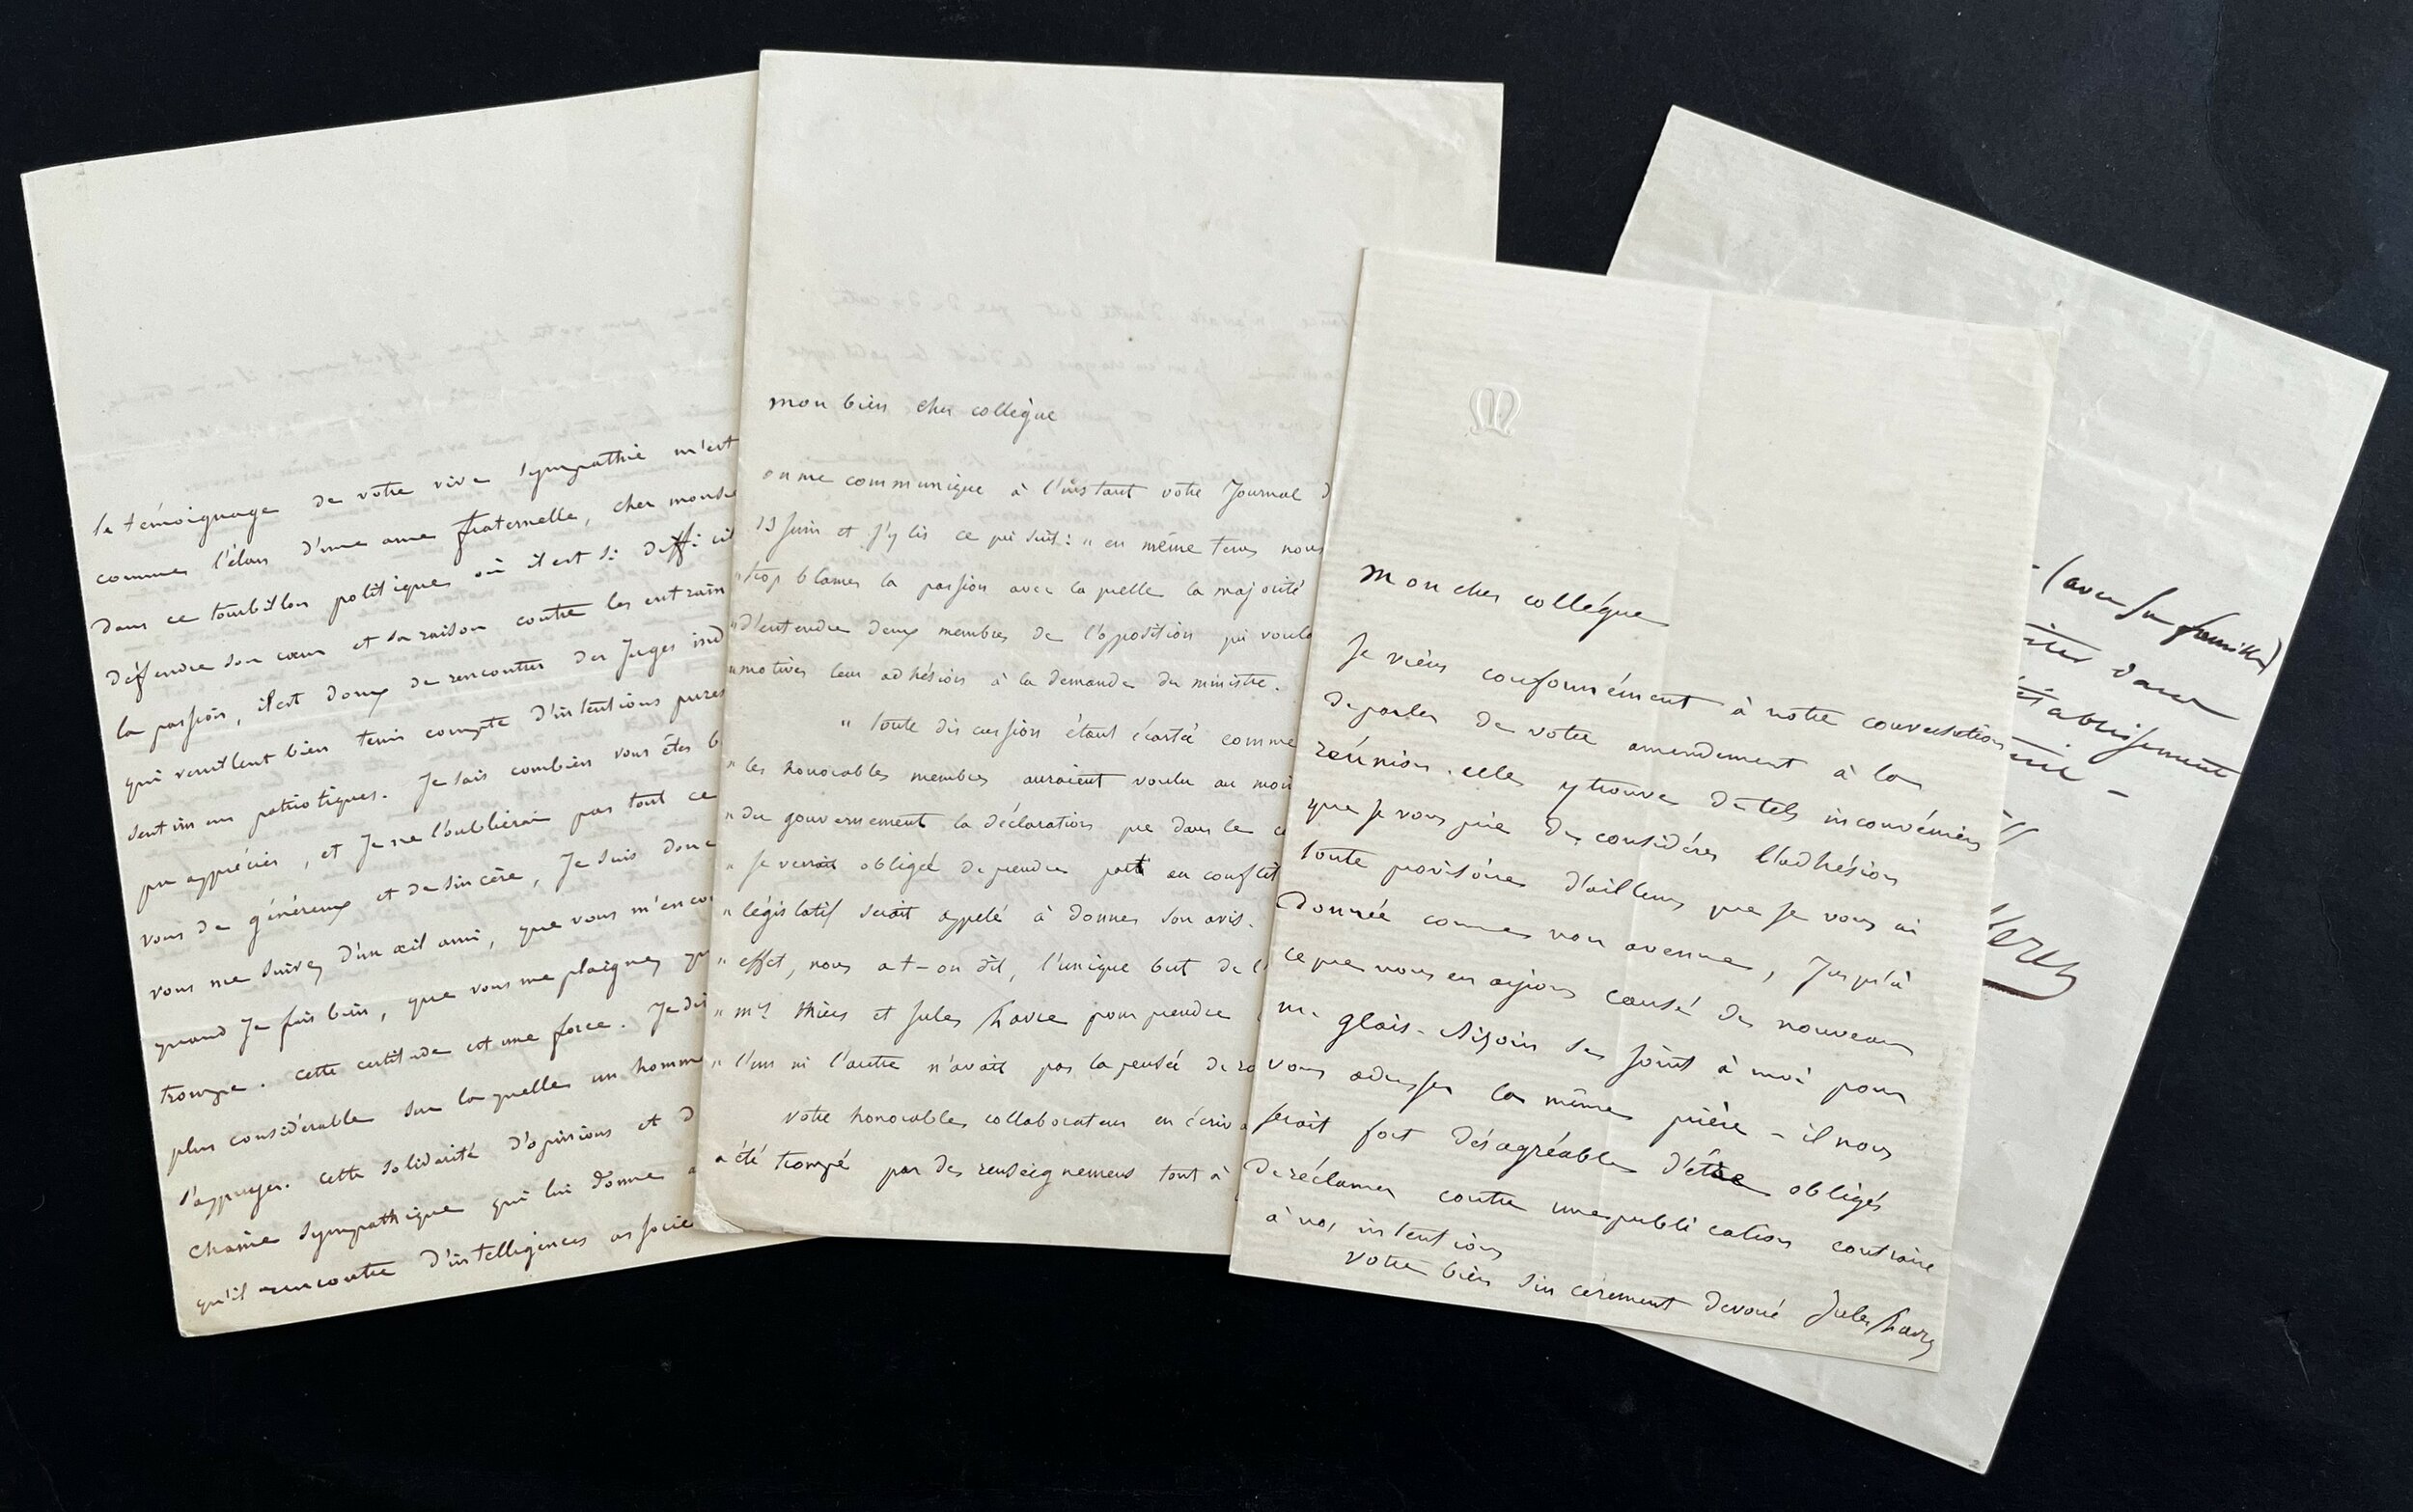 le témoignage de votre vive sympathie m'est
comme l'élan d'une ame fraternelle, cher
dans ce tourbillon politique où il est si
défendre son cœur et sa raison contre les
la passion, il est doux de rencontrer des Juges
qui veuillent bien tenir compte d'intentions pures
sentimens patriotiques. Je sais combien vous êtes
pu apprécier, et Je ne l'oublierai pas tout ce
vous de généreux et de sincère, Je suis donc
vous me suivez d'un œil ami, que vous
quand Je fais bien, que vous me plaignez
trompe. cette certitude est une force.
plus considérable sur laquelle un homme
s'appuyer. cette solidarité d'opinions et
chaîne sympathique qui lui donne
qu'il rencontre d'intelligences
mon bien cher collègue
on me communique à l'instant votre Journal
13 Juin et J'y lis ce qui suit : " en même tems nous
" trop blamer la passion avec laquelle la majorité
" d'entendre deux membres de l'opposition qui
" motiver leur adhésion à la demande du ministre.
" toute discussion étant écartée comme
" les honorables membres auraient voulu au
" du gouvernement la déclaration que dans le
" se verrait obligé de prendre part au conflit
" législatif serait appelé à donner son avis.
" effet, nous a t-on dit, l'unique but de
" mrs thiers et Jules favre pour prendre
" l'un ni l'autre n'avait pas la pensée de
votre honorable collaborateur en
a été trompé par des renseignemens tout à
M
mon cher collègue
Je viens conformément à notre conversation
de parler de votre amendement à la
réunion. elle y trouve de tels inconvéniens
que Je vous prie de considérer l'adhésion
toute provisoire d'ailleurs que Je vous ai
donnée comme non avenue, Jusqu'à
ce que nous en ayions causé de nouveau
m. glais-Bizoin se joint à moi pour
vous adresser la même prière - il nous
serait fort désagréable d'être obligés
de réclamer contre une publication contraire
à nos intentions
votre bien sincèrement dévoué Jules favre
(avec sa famille)
dans
établissement